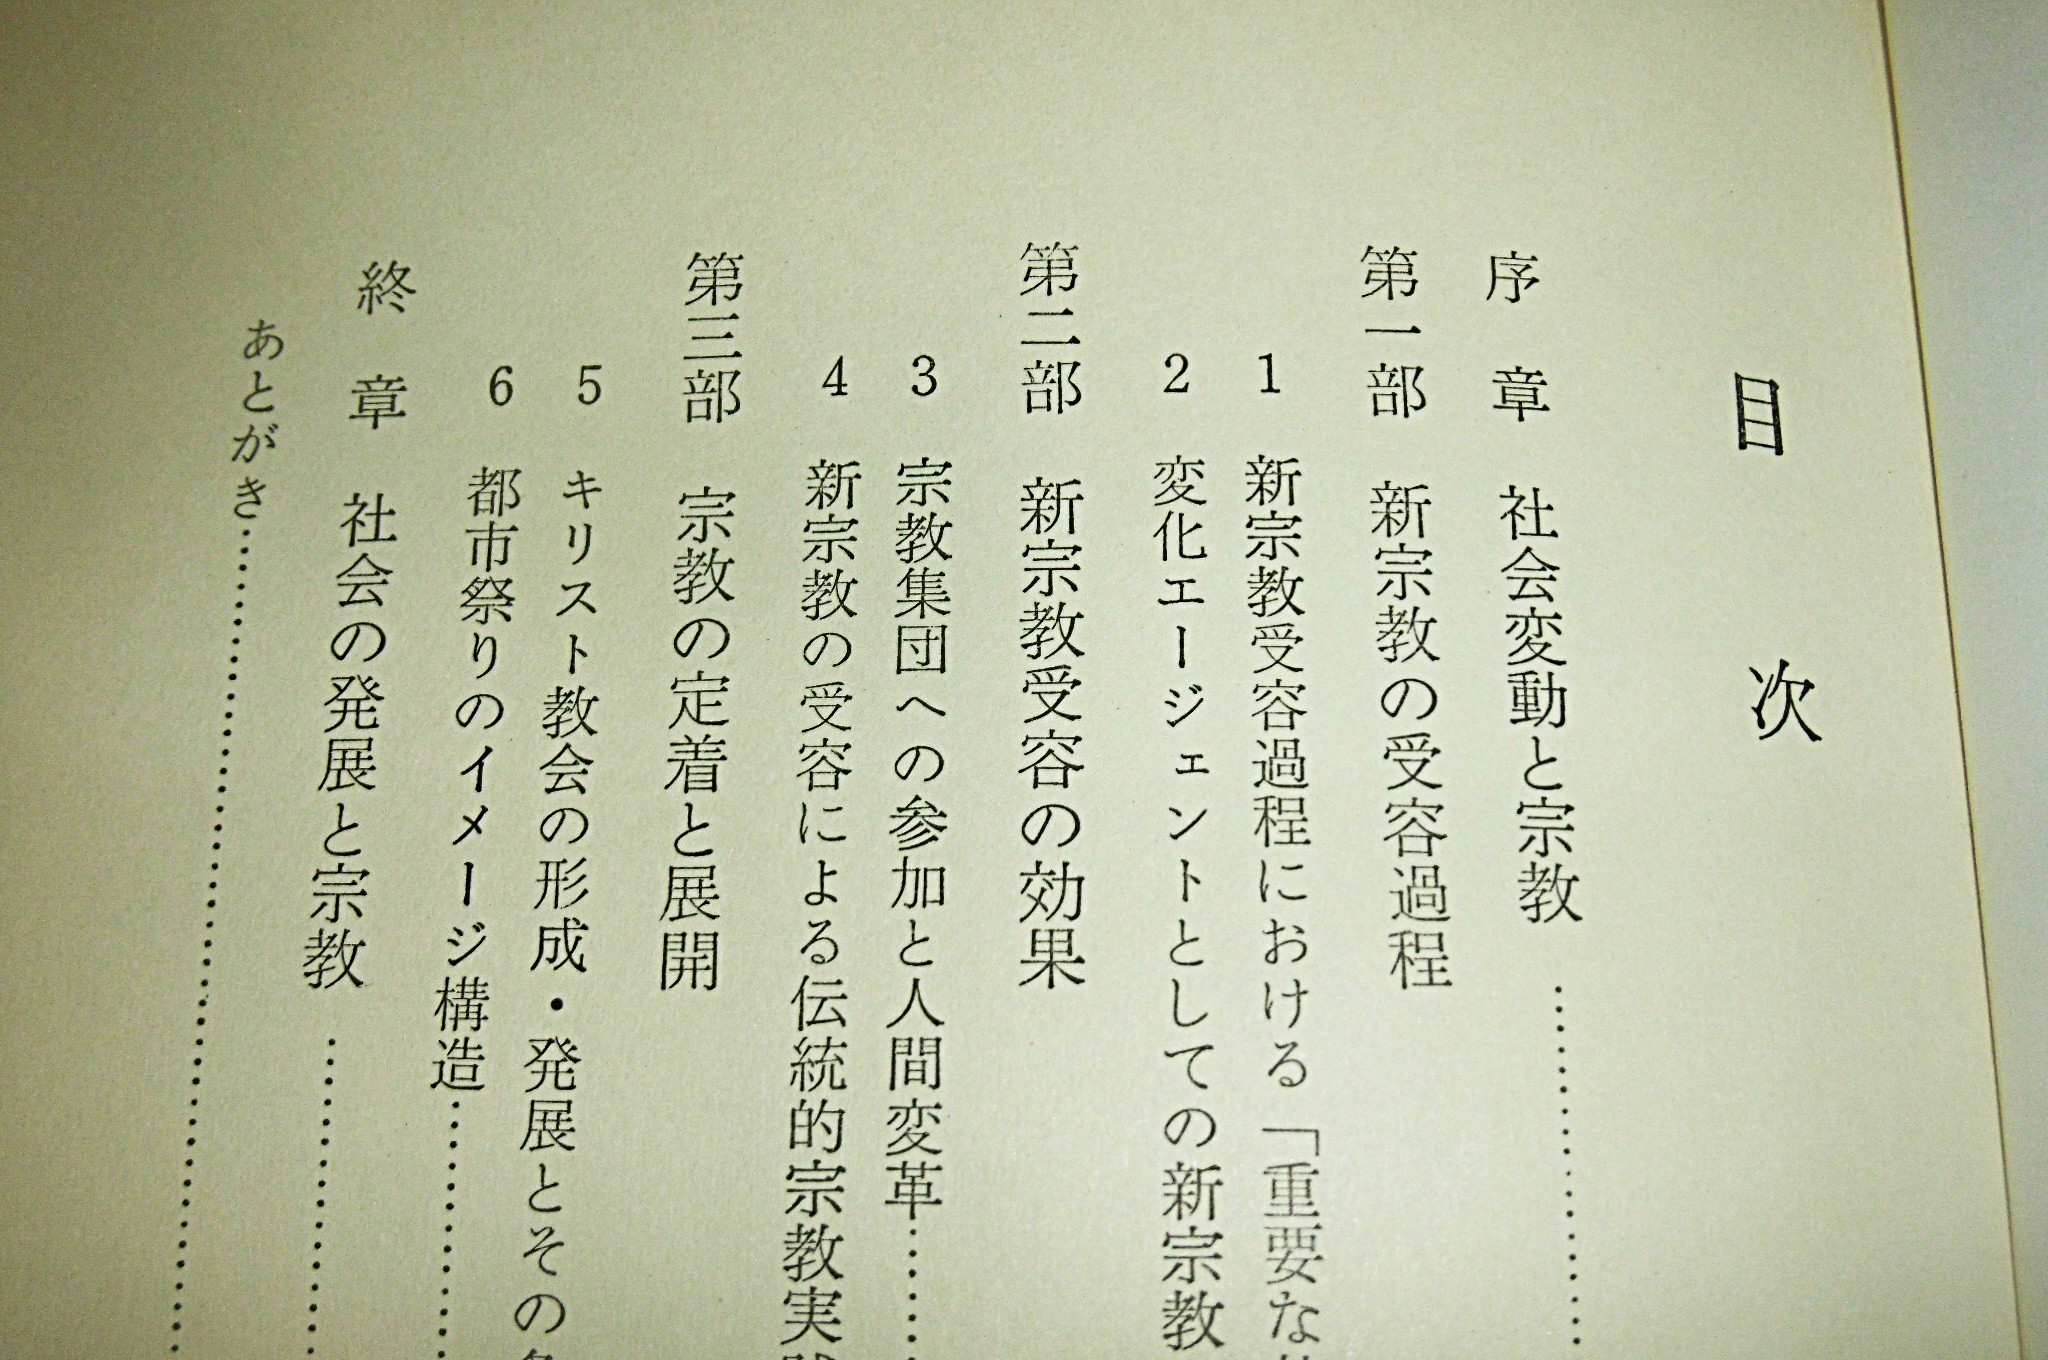 目次
序章 社会変動と宗教……………
第一部 新宗教の受容過程
1 新宗教受容過程における「重要な
2 変化エージェントとしての新宗教
第二部 新宗教受容の効果
3 宗教集団への参加と人間変革……
4 新宗教の受容による伝統的宗教実
第三部 宗教の定着と展開
5 キリスト教会の形成・発展とその
6 都市祭りのイメージ構造…………
終章 社会の発展と宗教……………
あとがき……………………………